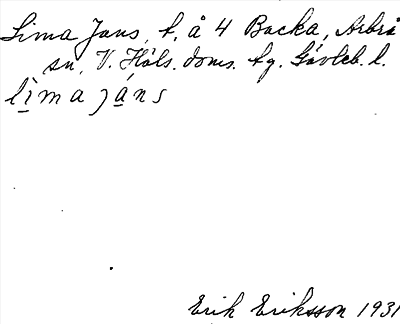 Lima Jans, t. å 4 Backa, Arbrå
sn, V. Häls. doms. tg. Gävleb. l.
lìma já̲ns
Erik Eriksson 1931